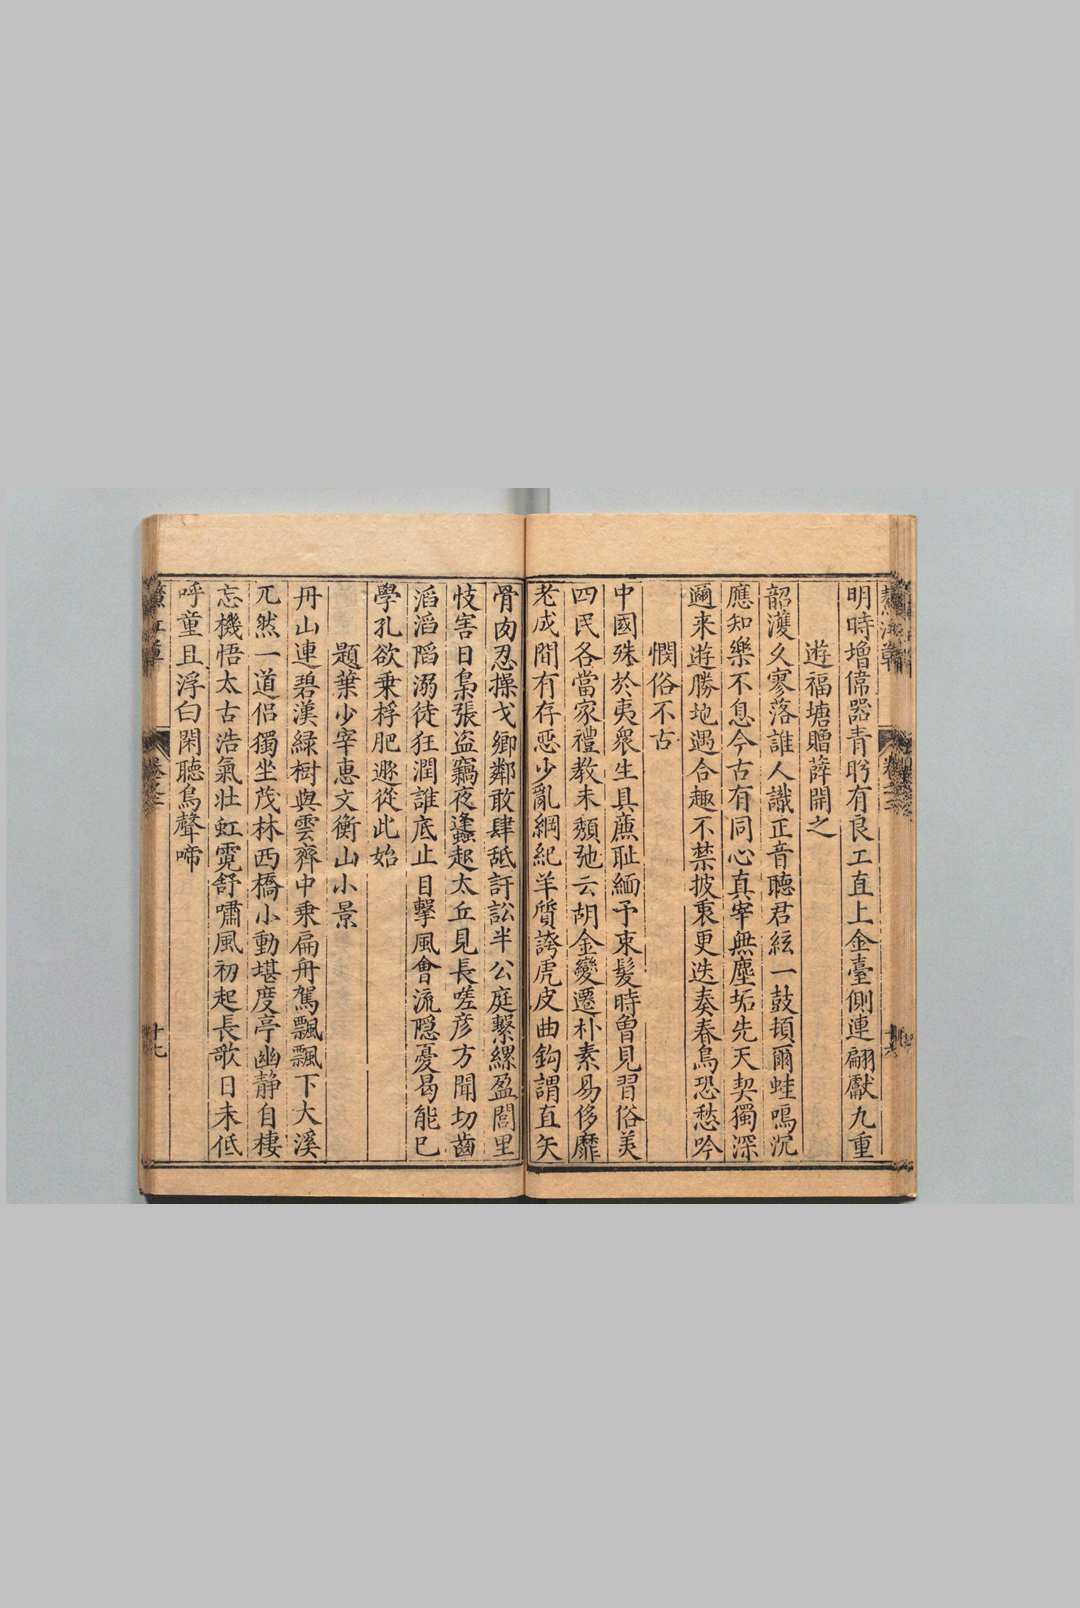 明時增偉器青眄有良工直上金臺側連翩獻九重
遊福塘贈薛開之
韶濩久寥落誰人識正音聽君絃一鼓頓爾蛙鳴沉
應知樂不息今古有同心真宰無塵垢先天契獨深
邇来遊勝地遇合趣不禁披衷更迭奏春鳥恐愁吟
憫俗不古
中國殊於夷衆生具廉耻緬予束髮時曾見習俗美
四民各當家禮教未頽弛云胡金變遷朴素易侈靡
老成間有存惡少亂綱紀羊質誇虎皮曲鈎謂直矢
骨肉忍操戈鄉鄰敢肆舐訐訟半公庭繫縲盈閭里
忮害日梟張盗竊夜蠭起太丘見長嗟彦方聞切齒
滔滔陷溺徒狂瀾誰底止目擊風會流隠憂曷能已
學孔欲乗桴肥遯從此始
題葉少宰惠文衡山小景
丹山連碧漢緑樹與雲齊中乗扁舟駕飄飄下大溪
兀然一道侣獨坐茂林西橋小動堪度亭幽静自棲
忘機悟太古浩氣壮虹霓舒嘯風初起長歌日未低
呼童且浮白閑聽鳥聲啼
卷之二
十七